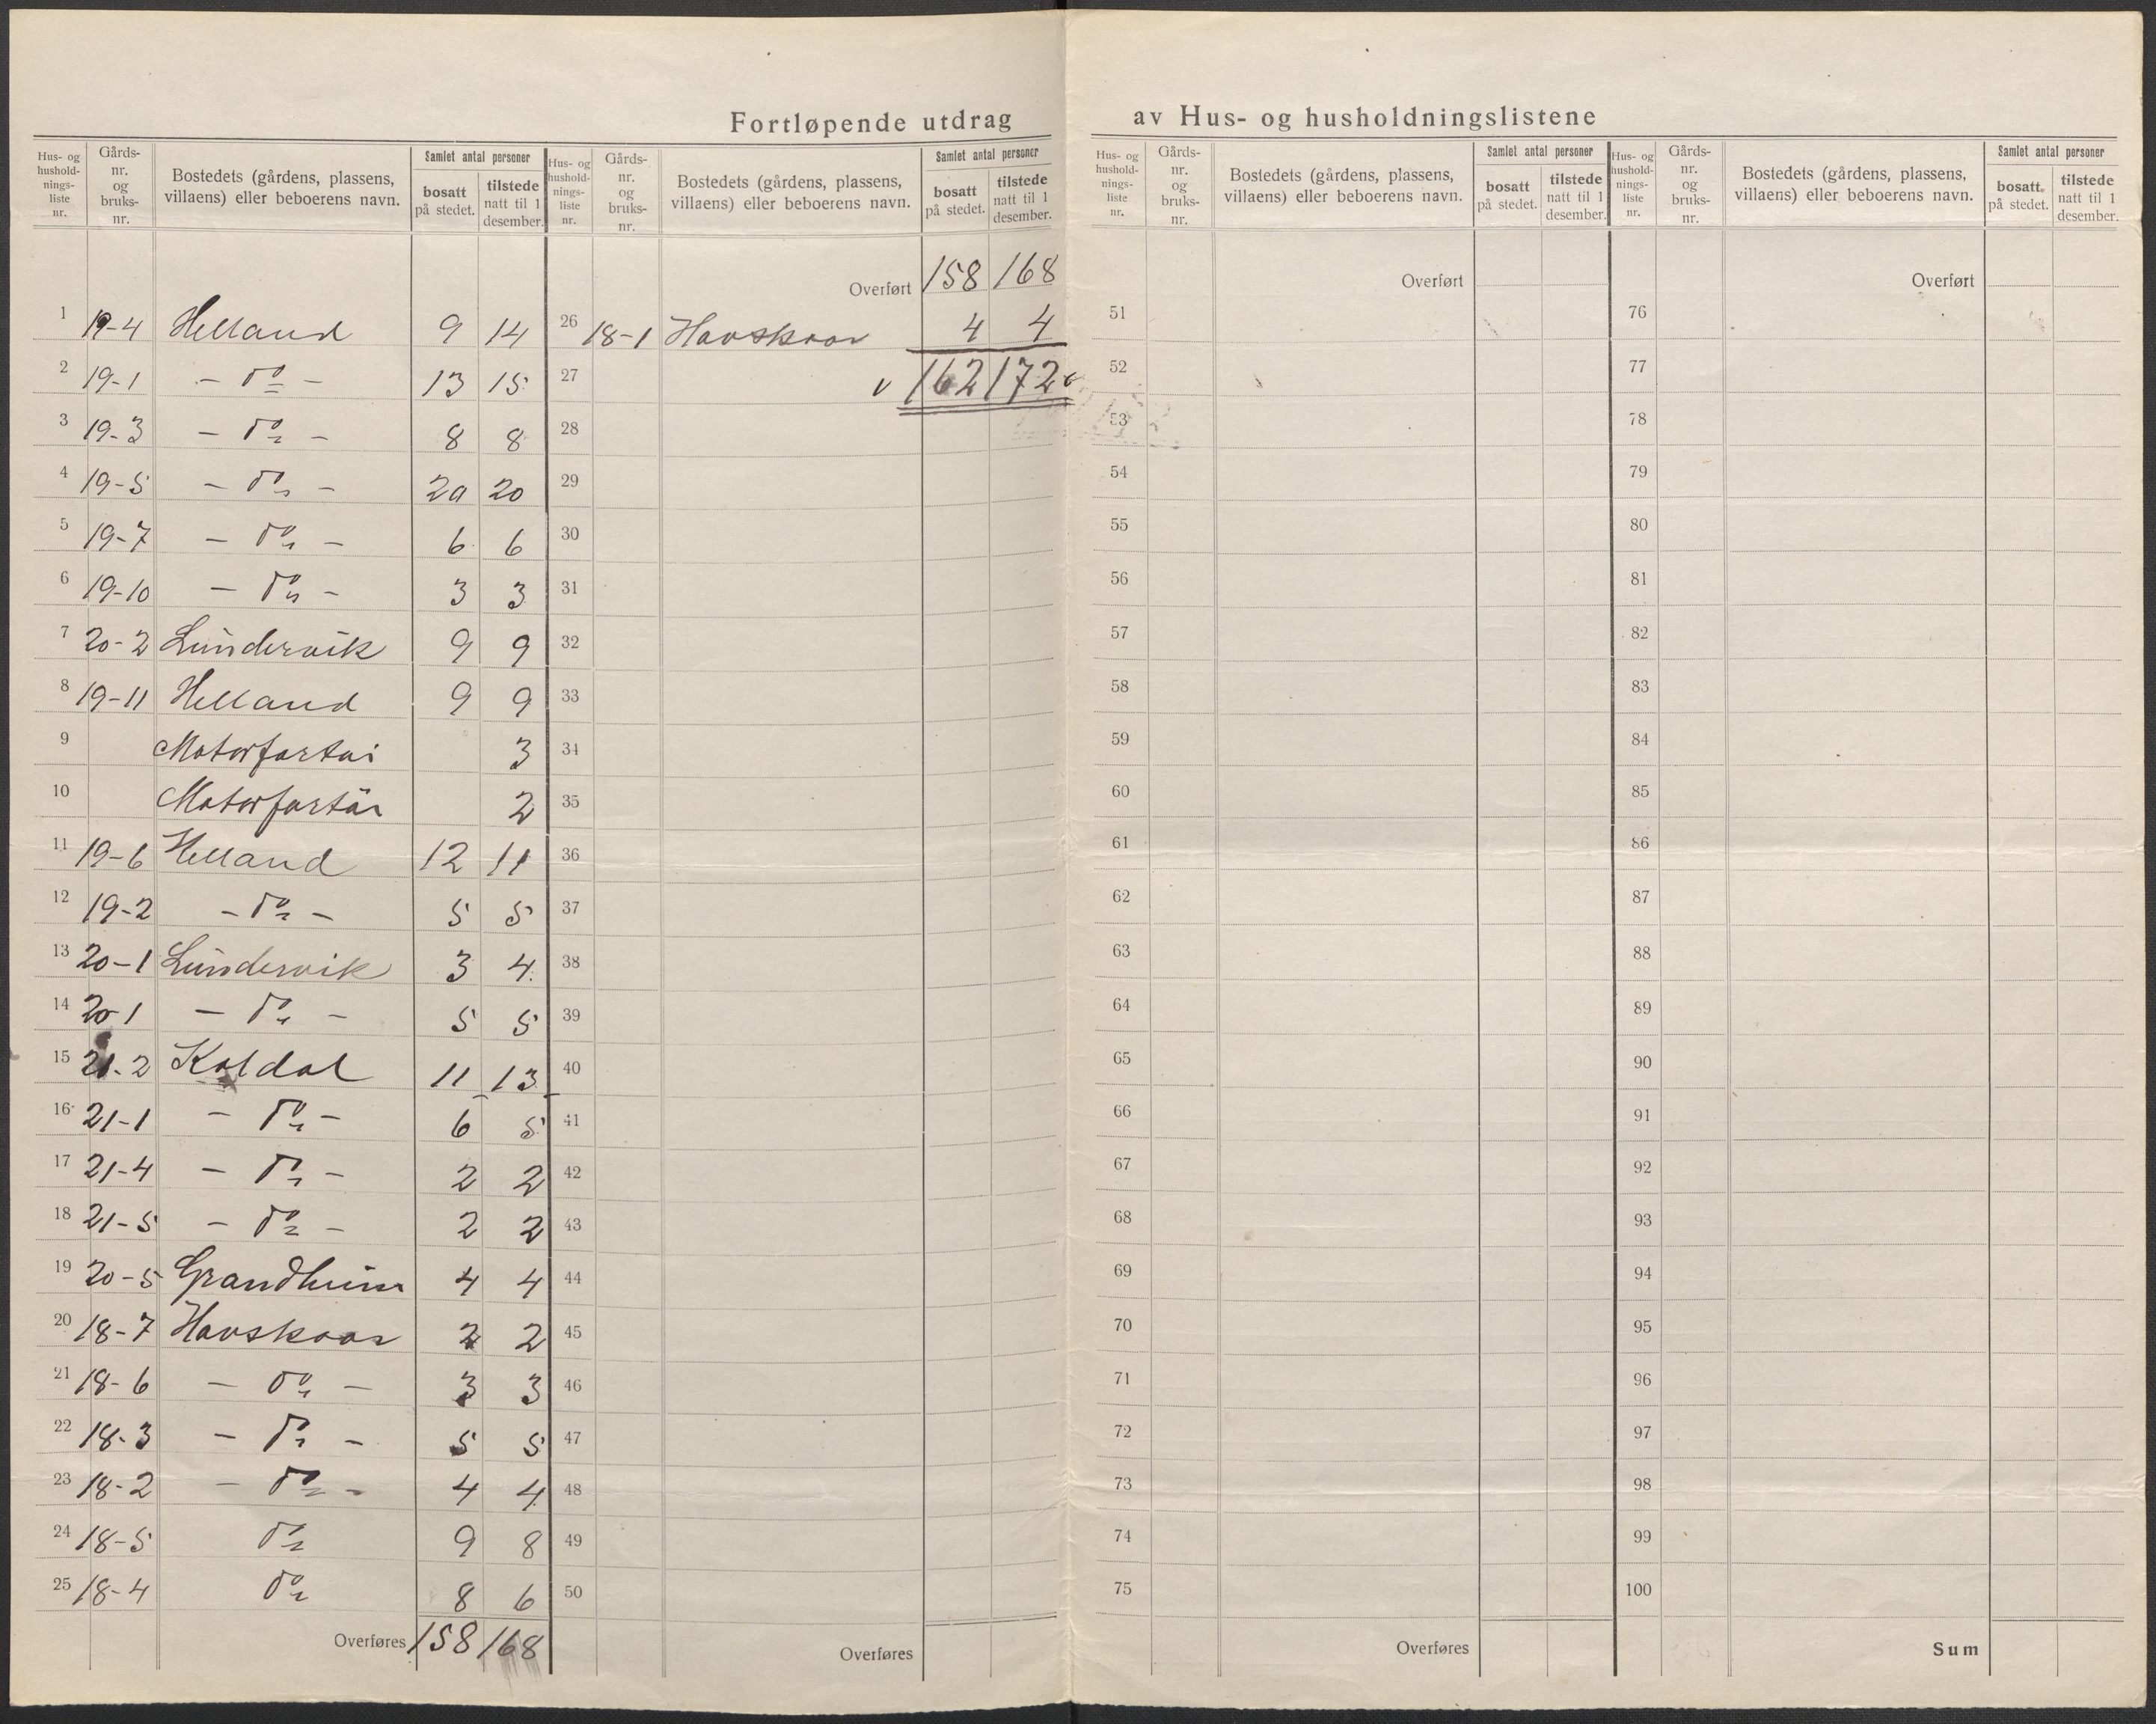 Fortløpende utdrag av Hus- og husholdningslistene
Hus- og husholdningsliste nr. | Gårdsnr. og bruksnr. | Bostedets (gårdens, plassens, villaens) eller beboerens navn. | Samlet antal personer | bosatt på stedet. | tilstede natt til 1 desember.
1 19-4 Helland 9 14
2 19-1 - do - 13 15
3 19-3 - do - 8 8
4 19-5 - do - 20 20
5 19-7 - do - 6 6
6 19-10 - do - 3 3
7 20-2 Lundervik 9 9
8 19-11 Helland 9 9
9 Motorfartøi 3
10 Motorfartøi 2
11 19-6 Helland 12 11
12 19-2 - do - 5 5
13 20-1 Lundervik 3 4
14 20-1 - do - 5 5
15 21-2 Koldal 11 13
16 21-1 - do - 6 5
17 21-4 - do - 2 2
18 21-5 - do - 2 2
19 20-5 Grandheim 4 4
20 18-7 Havskaar 2 2
21 18-6 - do - 3 3
22 18-3 - do - 5 5
23 18-2 - do - 4 4
24 18-5 do 9 8
25 18-4 do 8 6
Overføres 158 168
Hus- og husholdningsliste nr. | Gårdsnr. og bruksnr. | Bostedets (gårdens, plassens, villaens) eller beboerens navn. | Samlet antal personer | bosatt på stedet. | tilstede natt til 1 desember.
Overført 158 168
26 18-1 Havskaar 4 4
27 v 162 172 v
28
29
30
31
32
33
34
35
36
37
38
39
40
41
42
43
44
45
46
47
48
49
50
Overføres
Hus- og husholdningsliste nr. | Gårdsnr. og bruksnr. | Bostedets (gårdens, plassens, villaens) eller beboerens navn. | Samlet antal personer | bosatt på stedet. | tilstede natt til 1 desember.
Overført
51
52
53
54
55
56
57
58
59
60
61
62
63
64
65
66
67
68
69
70
71
72
73
74
75
Overføres
Hus- og husholdningsliste nr. | Gårdsnr. og bruksnr. | Bostedets (gårdens, plassens, villaens) eller beboerens navn. | Samlet antal personer | bosatt på stedet. | tilstede natt til 1 desember.
Overført
76
77
78
79
80
81
82
83
84
85
86
87
88
89
90
91
92
93
94
95
96
97
98
99
100
Sum